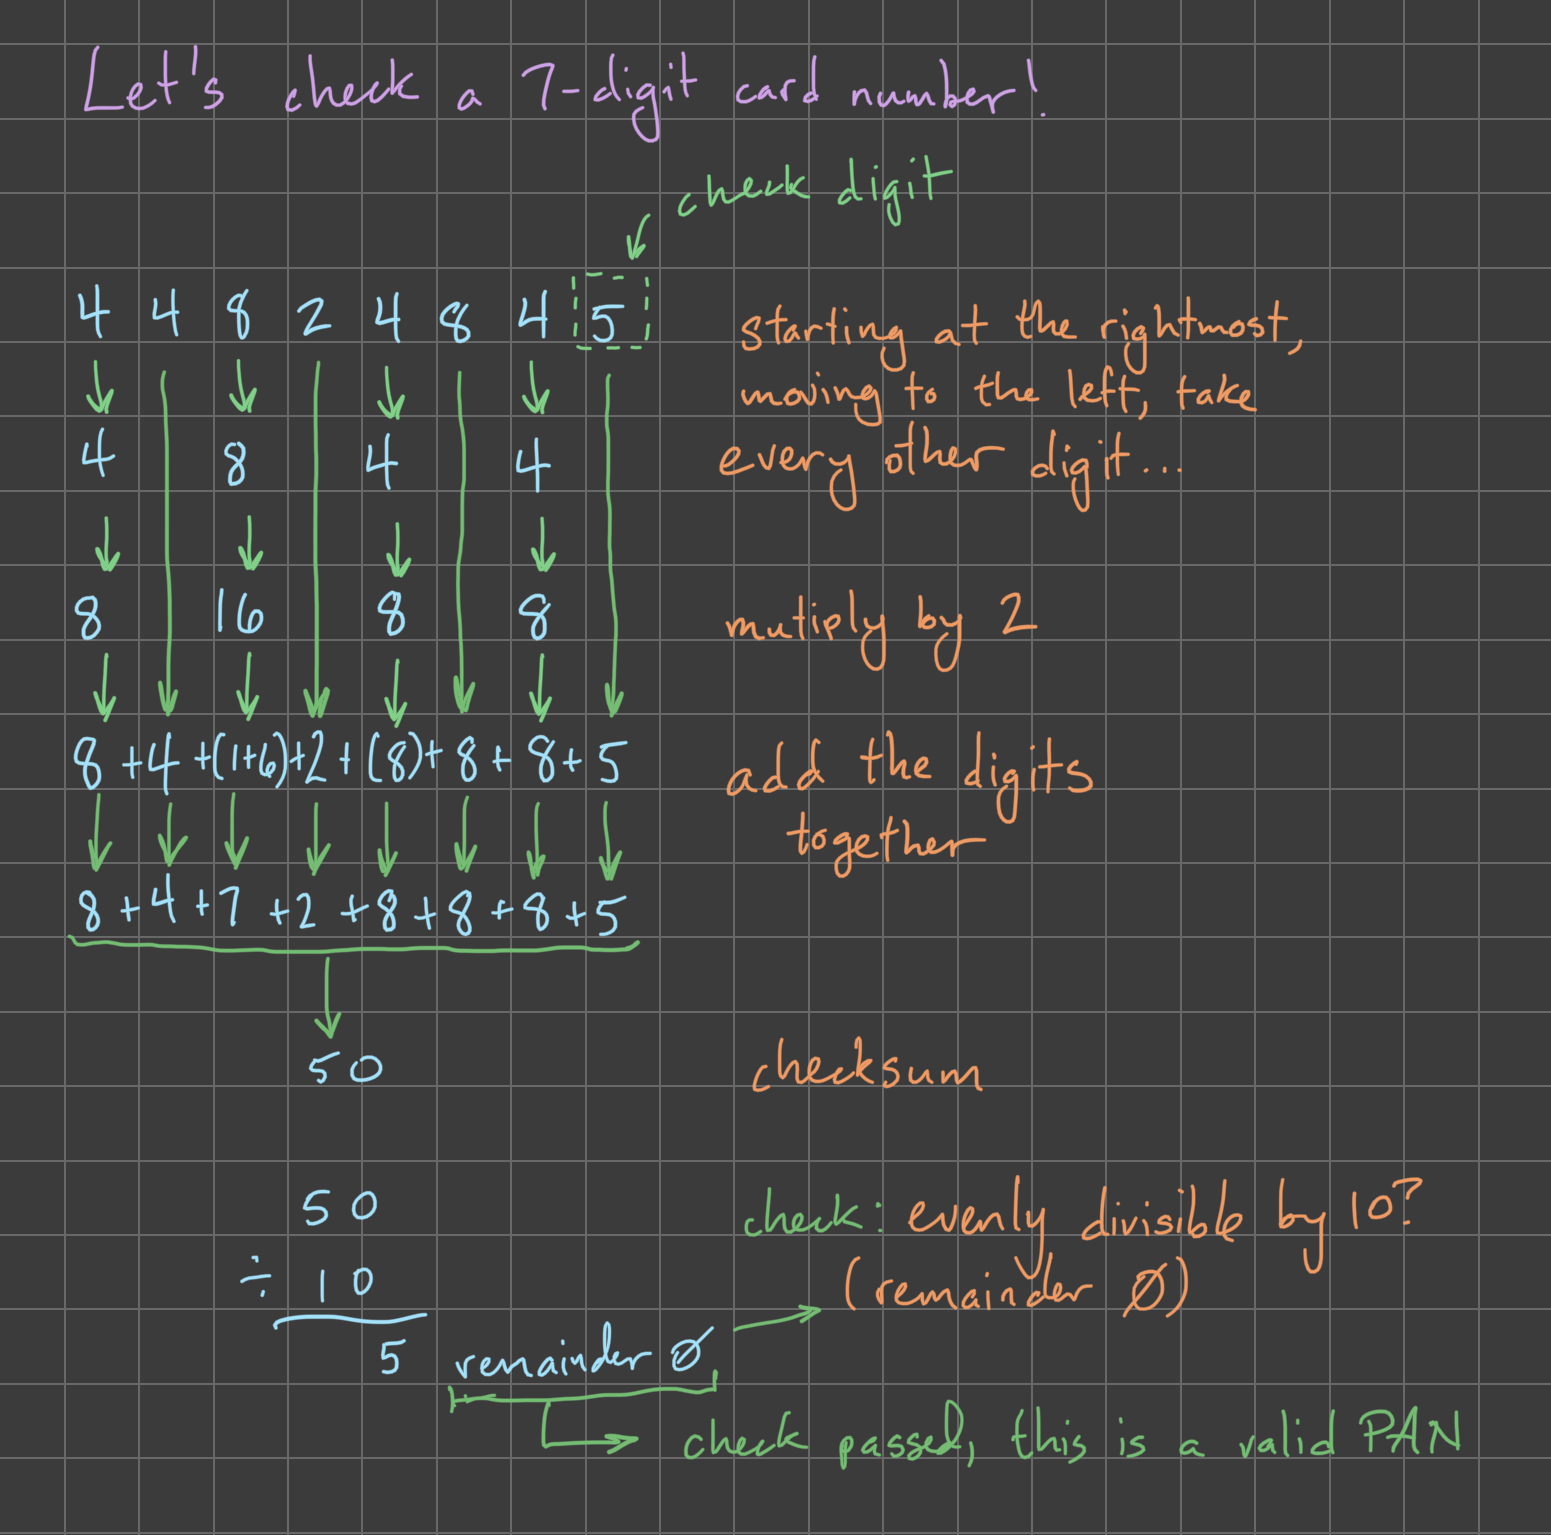 Let's check a 7-digit card number!
check digit
4 4 8 2 4 8 4 5
starting at the rightmost,
moving to the left, take
4 8 4 4
every other digit...
8 16 8 8
mutiply by 2
8 +4 +(1+6)+2 + (8)+ 8 + 8 + 5
add the digits
together
8 + 4 + 7 + 2 + 8 + 8 + 8 + 5
50
checksum
50
check: evenly divisible by 10?
÷ 10
(remainder Ø)
5 remainder Ø
check passed, this is a valid PAN